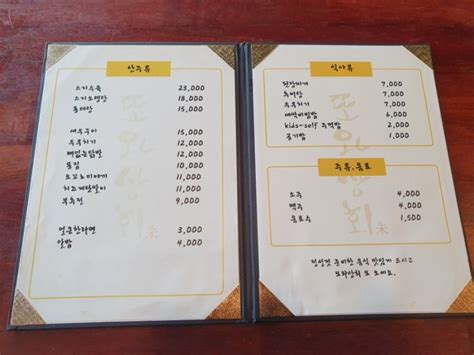 안주류
스지수육 23,000
스지오뎅탕 18,000
동태탕 15,000
새우구이 15,000
두부치기 12,000
뼈없는닭발 12,000
똥집 12,000
11,000
치즈계란말이 11,000
부추전 9,000
얼큰한라면 3,000
알밥 4,000
식사류
된장찌개 7,000
추어탕 7,000
두부치기 7,000
새싹비빔밥 6,000
kids-self 주먹밥 2,000
공기밥 1,000
주류.음료
소주 4,000
맥주 4,000
음료수 1,500
정성껏 준비한 음식 맛있게 드시고
또와상회 또 오세요.
또와상회